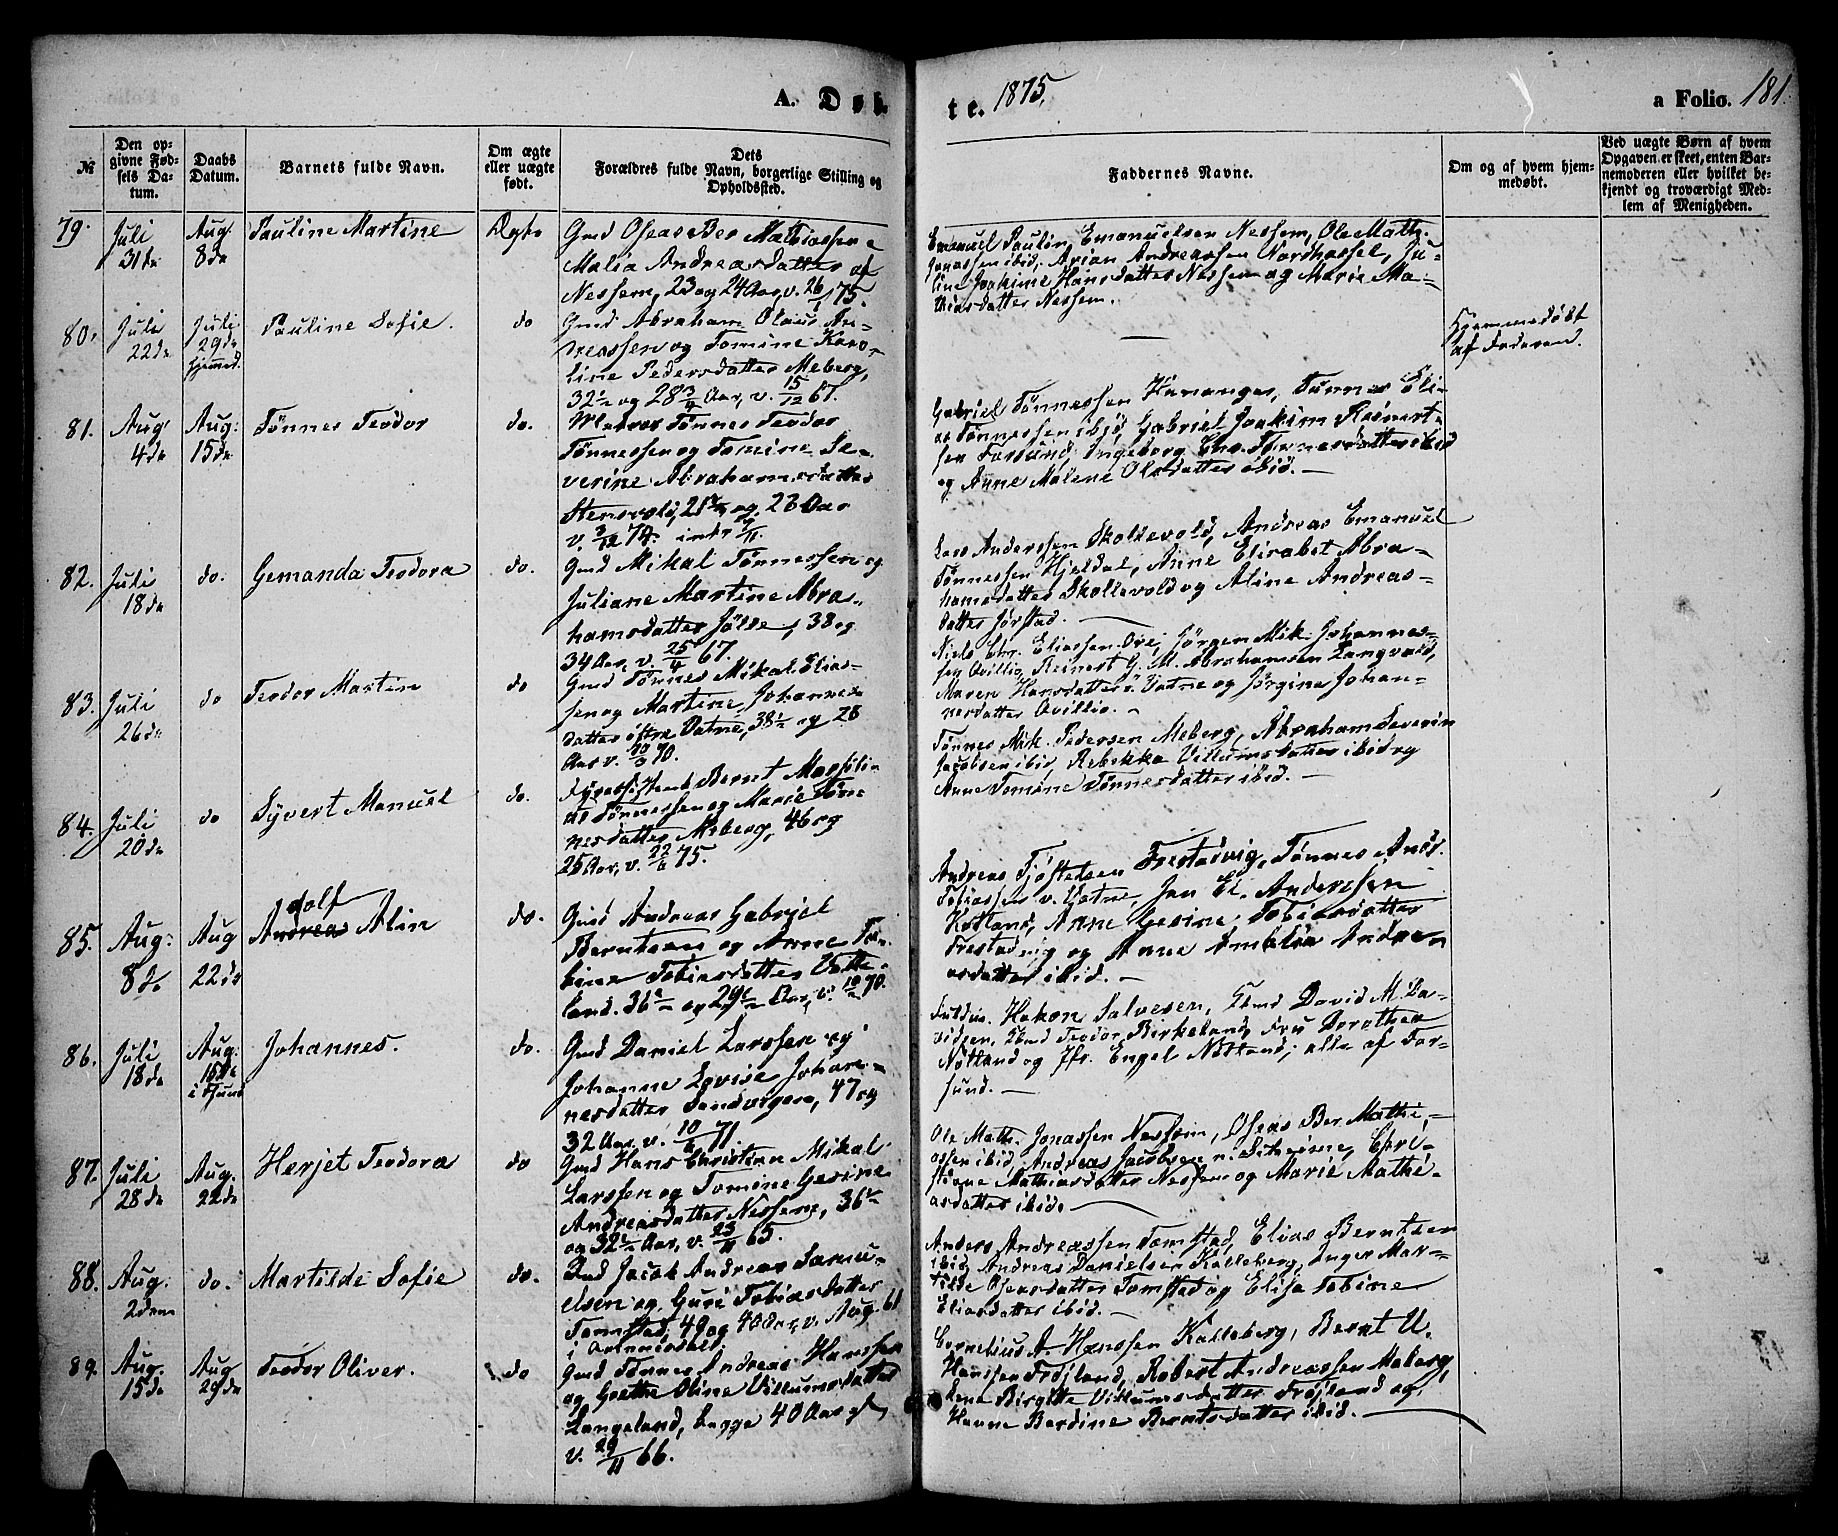 A. Døb
te. 1875.
a Folio. 181.
№
Den op-
givne Fød-
sels Da-
tum.
Daabs
Datum.
Barnets fulde Navn.
Om ægte
eller uægte
født.
Dets
Forældres fulde Navn, borgerlige Stilling og
Opholdssted.
Faddernes Navne.
Om og af hvem hjem-
medøbt.
Ved uægte Børn af hvem
Opgaven er skeet, enten Bar-
nemoderen eller hvilket be-
kjendt og troværdigt Med-
lem af Menigheden.
79.
Juli
31de
Aug.
8de
Pauline Martine
Ægte
Gmd Oseas Ber Mathiassen
Malia Andreasdatter af
Nessem, 23 og 24 Aar, v. 26/1 75.
Emanuel Paulin Emanuelsen Nessem, Ole Math.
Jonassen ibid, Arian Andreassen Nordhassel, Ju-
line Joakime Hansdatter Nessem og Marie Ma-
thiasdatter Nessem.
80.
Juli
22de
Juli
29de
hjemmed.
Pauline Sofie.
do
Gmd Abraham Olaus An-
dreassen og Tomine Karo-
line Pedersdatter Meberg,
32½ og 28¾ Aar, v. 15/12 67.
—
Hjemmedøbt
af Faderen.
81.
Aug.
4de
Aug:
15de
Tønnes Teodor
do.
Tønnes Teodor
Tønnessen og Tomine Se-
verine Abrahamsdatter
Stensvold, og 23 Aar
v. 3/12 74.
Gabriel Tønnessen Kanangas, Tønnes Eli-
as Tønnessen ibid, Gabriel Joakim Reinert-
sen Farsund, Ingeborg Chr. Tønnesdatter ibid
og Anne Malene Olsdatter ibid. —
82.
Juli
18de
do.
Gemanda Teodora
do.
Gmd Mikal Tønnessen og
Juliane Martine Abra-
hamsdatter Jølle, 38 og
34 Aar, v. 25/4 67.
Lars Anderssen Skollevold, Andreas Emanuel
Tønnessen Hjeldal, Anne Elisabet Abra-
hamsdatter Skollevold og Aline Andreas-
datter Jørstad. —
83.
Juli
26de
do
Teodor Martin
do
Gmd Tønnes Mikal Elias-
sen og Martine Johannes-
datter østre Vatne, 38½ og 28
Aar v. 70.
Niels Chr. Eliassen Ore, Jørgen Mik. Johannes-
sen Qvillio, Reinert G. M. Abrahamsen Langvald,
Maren Hansdatter ø. Vatne og Jørgine Johan-
nesdatter Qvillio. —
84.
Juli
20de
do
Syvert Manuel
do.
Fyrassistent Bernt Massili-
us Tønnessen og Marie Tøn-
nesdatter Meberg, 46 og
25 Aar, v. 75.
Tønnes Mik. Pedersen Meberg, Abraham Severin
Jacobsen ibid, Rebekka Villumsdatter ibid og
Anne Tomine Tønnesdatter ibid. —
85.
Aug:
8de
Aug
22de
dolf
Andreas Alin
do.
Gmd Andreas Gabriel
Berntsen og Anne To-
bine Tobiasdatter Vatte-
land. 36½ og 29½ Aar, v. 70.
Andreas Tjøstelsen Frestadvig, Tønnes Andr.
Tobiassen v. Vatne, Jan El. Anderssen
Kotland, Anne Gesine Tobiasdatter
Frestadvig og Anne Amalia Andre-
asdatter ibid. —
86.
Juli
18de
Aug:
15de
Johannes.
do.
Gmd Daniel Larssen og
Johanne Lovise Johan-
nesdatter Sandvigen, 47 og
32 Aar, v. 71.
Hakon Salvesen, David M. Da-
vidsen, Teodor Birkeland, Fru Dorothea
Nøtland og Jfr. Engel Nøtland, alle af Far-
sund. —
87.
Juli
28de
Aug.
22de
Herjet Teodora
do
Gmd Hans Christian Mikal
Larssen og Tomine Gesine
Andreasdatter Nessem, 36½
og 32½ Aar, v. 23/11 65.
Ole Math. Jonassen Nessem, Oseas Ber. Mathi-
assen ibid, Andreas Jacobsen Chri-
stiane Mathiasdatter Nessem og Marie Mathi-
asdatter ibid. —
88.
Aug:
2den
do.
Martilde Sofie
do.
Jacob Andreas Samu-
elsen og Guri Tobiasdatter
Tomstad, 49 og 40 Aar, v. Aug. 61
i
Anders Andreassen Tomstad, Elias Berntsen
ibid, Andreas Danielsen Kalleberg, Inger Mar-
tilde Oseasdatter Tomstad og Elisa Tobine
Eliasdatter ibid. —
89.
Aug.
15de
Aug
29de
Teodor Oliver.
do
Gmd Tønnes Andreas Hanssen
og Grethe Oline Villumsdatter
Langeland, begge 40 Aar gl.
v. 29/11 66.
Cornelius A. Hanssen Kalleberg, Bernt U.
Hanssen Frøjland, Robert Andreassen Meberg,
Lene Birgitte Villumsdatter Frøjland og
Hanne Berdine Berntsdatter ibid. —